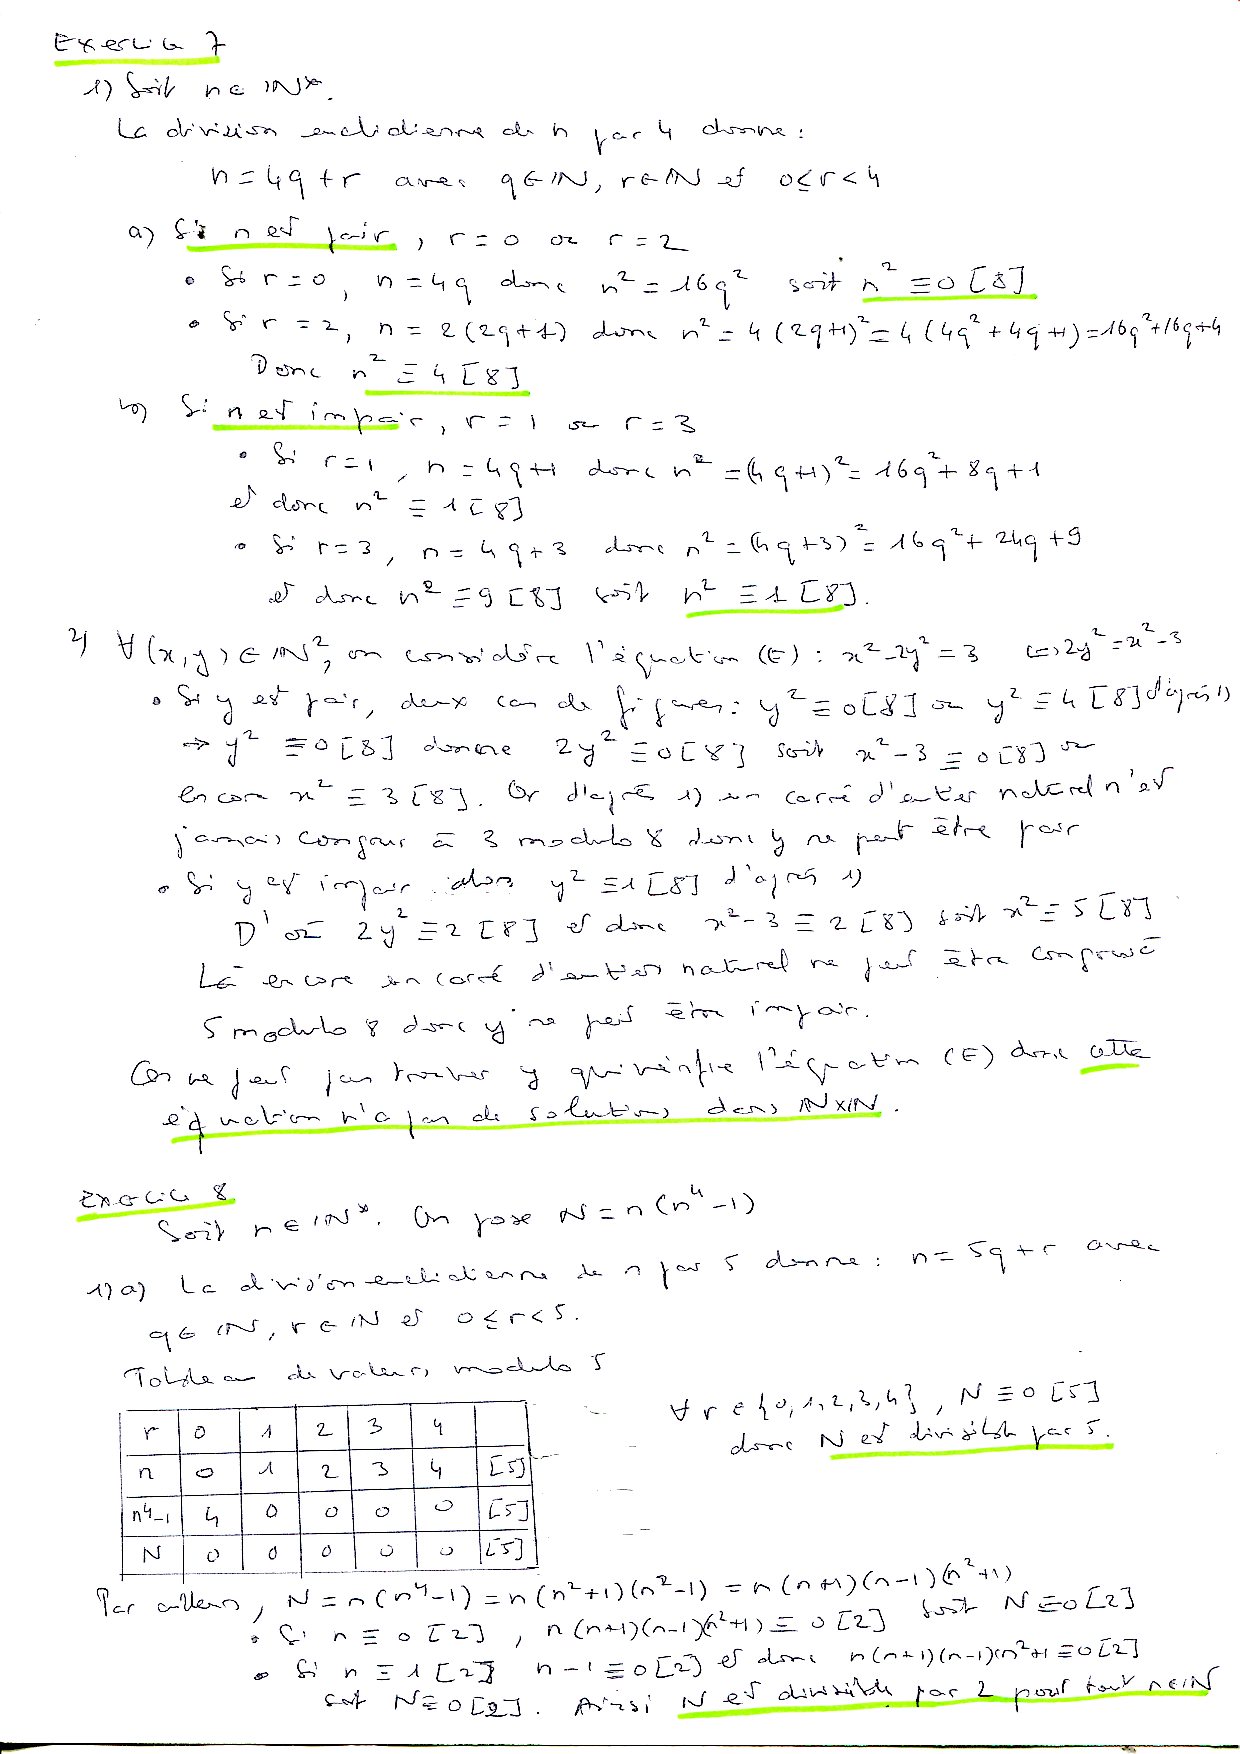 Exercice 7
1) Soit n ∈ ℕ*.
La division euclidienne de n par 4 donne :
n = 4q + r avec q ∈ ℕ, r ∈ ℕ et 0 ≤ r < 4
a) Si n est pair, r = 0 ou r = 2
• Si r = 0, n = 4q donc n² = 16q² soit n² ≡ 0 [8]
• Si r = 2, n = 2(2q+1) donc n² = 4(2q+1)² = 4(4q²+4q+1) = 16q²+16q+4
Donc n² ≡ 4 [8]
b) Si n est impair, r = 1 ou r = 3
• Si r = 1, n = 4q+1 donc n² = (4q+1)² = 16q² + 8q + 1
et donc n² ≡ 1 [8]
• Si r = 3, n = 4q+3 donc n² = (4q+3)² = 16q² + 24q + 9
et donc n² ≡ 9 [8] soit n² ≡ 1 [8].
2) ∀(x,y) ∈ ℕ², on considère l'équation (E) : x² - 2y² = 3 ⇔ 2y² = x² - 3
• Si y est pair, deux cas de figures : y² ≡ 0 [8] ou y² ≡ 4 [8] d'après 1)
→ y² ≡ 0 [8] donne 2y² ≡ 0 [8] soit x² - 3 ≡ 0 [8] ou
encore x² ≡ 3 [8]. Or d'après 1) un carré d'entier naturel n'est
jamais congru à 3 modulo 8 donc y ne peut être pair
• Si y est impair alors y² ≡ 1 [8] d'après 1)
D'où 2y² ≡ 2 [8] et donc x² - 3 ≡ 2 [8] soit x² ≡ 5 [8]
Là encore un carré d'entier naturel ne peut être congru à
5 modulo 8 donc y ne peut être impair.
On ne peut pas trouver y qui vérifie l'équation (E) donc cette
équation n'a pas de solutions dans ℕ×ℕ.
Exercice 8
Soit n ∈ ℕ*. On pose N = n(n⁴-1)
1) a) La division euclidienne de n par 5 donne : n = 5q + r avec
q ∈ ℕ, r ∈ ℕ et 0 ≤ r < 5.
Tableau de valeurs modulo 5
∀ r ∈ {0,1,2,3,4}, N ≡ 0 [5]
donc N est divisible par 5.
r 0 1 2 3 4
n 0 1 2 3 4 [5]
n⁴-1 4 0 0 0 0 [5]
N 0 0 0 0 0 [5]
Par ailleurs, N = n(n⁴-1) = n(n²+1)(n²-1) = n(n+1)(n-1)(n²+1)
• Si n ≡ 0 [2], n(n+1)(n-1)(n²+1) ≡ 0 [2] soit N ≡ 0 [2]
• Si n ≡ 1 [2] n-1 ≡ 0 [2] et donc n(n+1)(n-1)(n²+1 ≡ 0 [2]
soit N ≡ 0 [2]. Ainsi N est divisible par 2 pour tout n ∈ ℕ